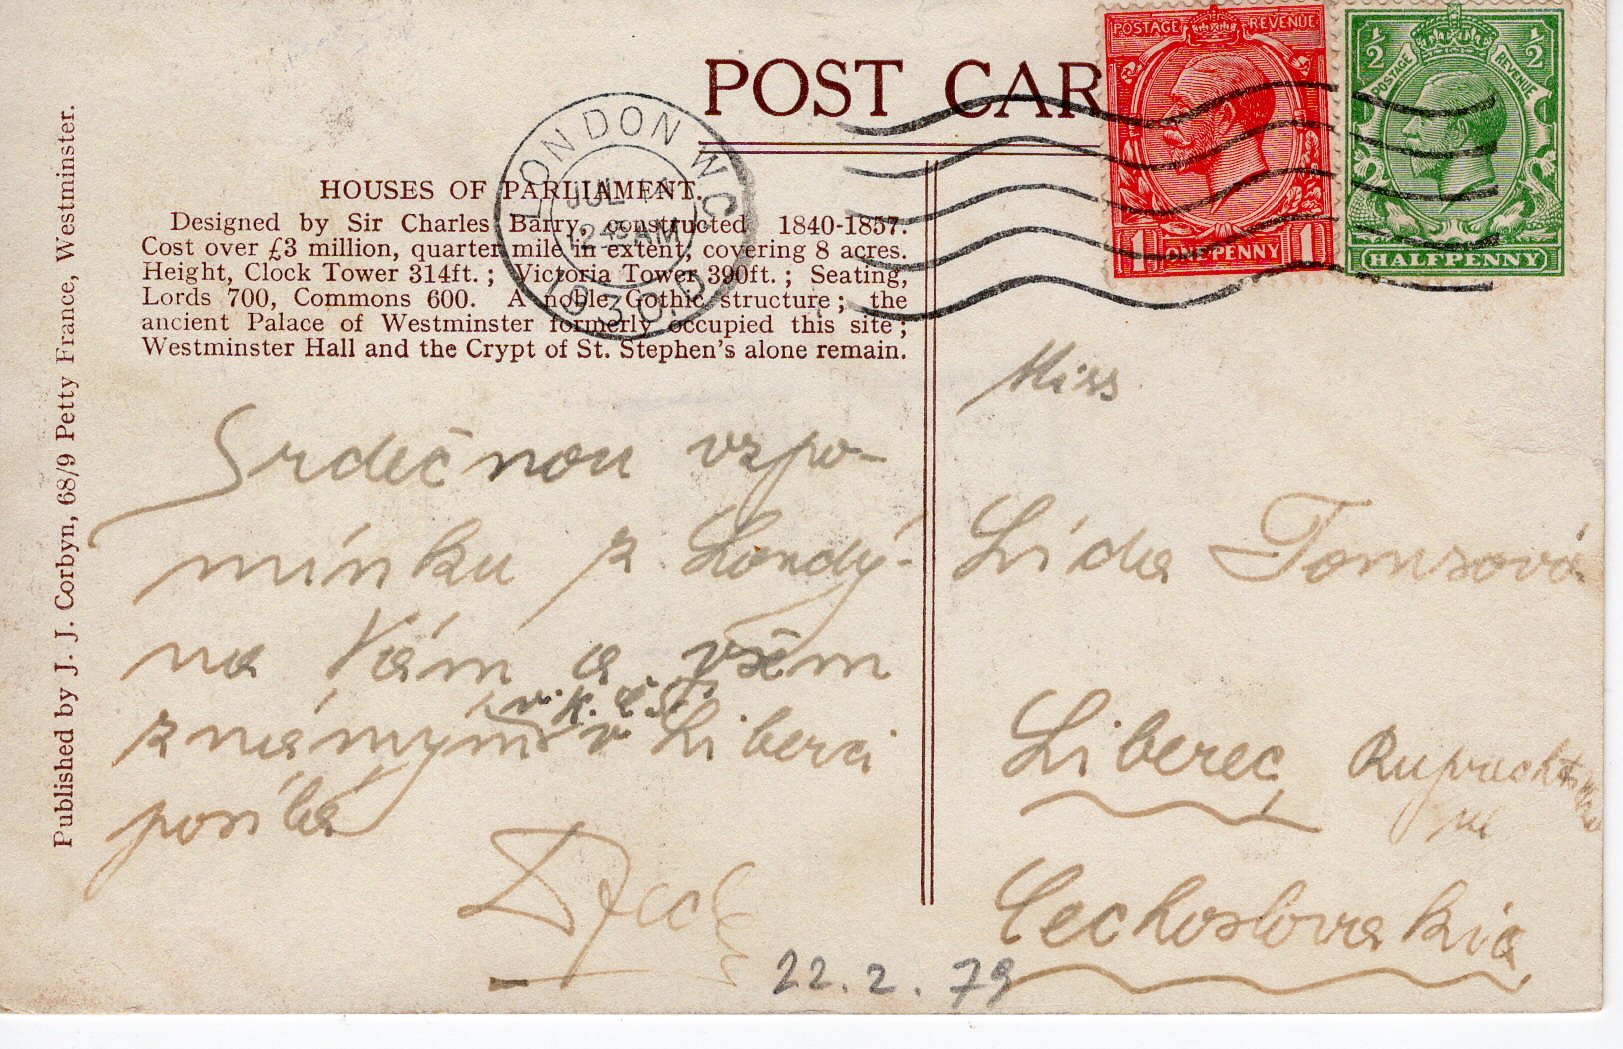 POST CAR
POSTAGE REVENUE
1 ONE PENNY 1
½ ½
POSTAGE REVENUE
HALFPENNY
LONDON W.C.
JUL
12 45 AM
HOUSES OF PARLIAMENT.
Designed by Sir Charles Barry, constructed 1840-1857.
Cost over £3 million, quarter mile in extent, covering 8 acres.
Height, Clock Tower 314ft. ; Victoria Tower 390ft. ; Seating,
Lords 700, Commons 600. A noble Gothic structure ; the
ancient Palace of Westminster formerly occupied this site ;
Westminster Hall and the Crypt of St. Stephen's alone remain.
Published by J. J. Corbyn, 68/9 Petty France, Westminster.
Srdečnou vzpo-
mínku z Londý-
na Vám a všem
v. K. Č. S. T.
známým v Liberci
posílá
22. 2. 79
Miss
Lída Tomsová
Liberec
Cechoslovakia